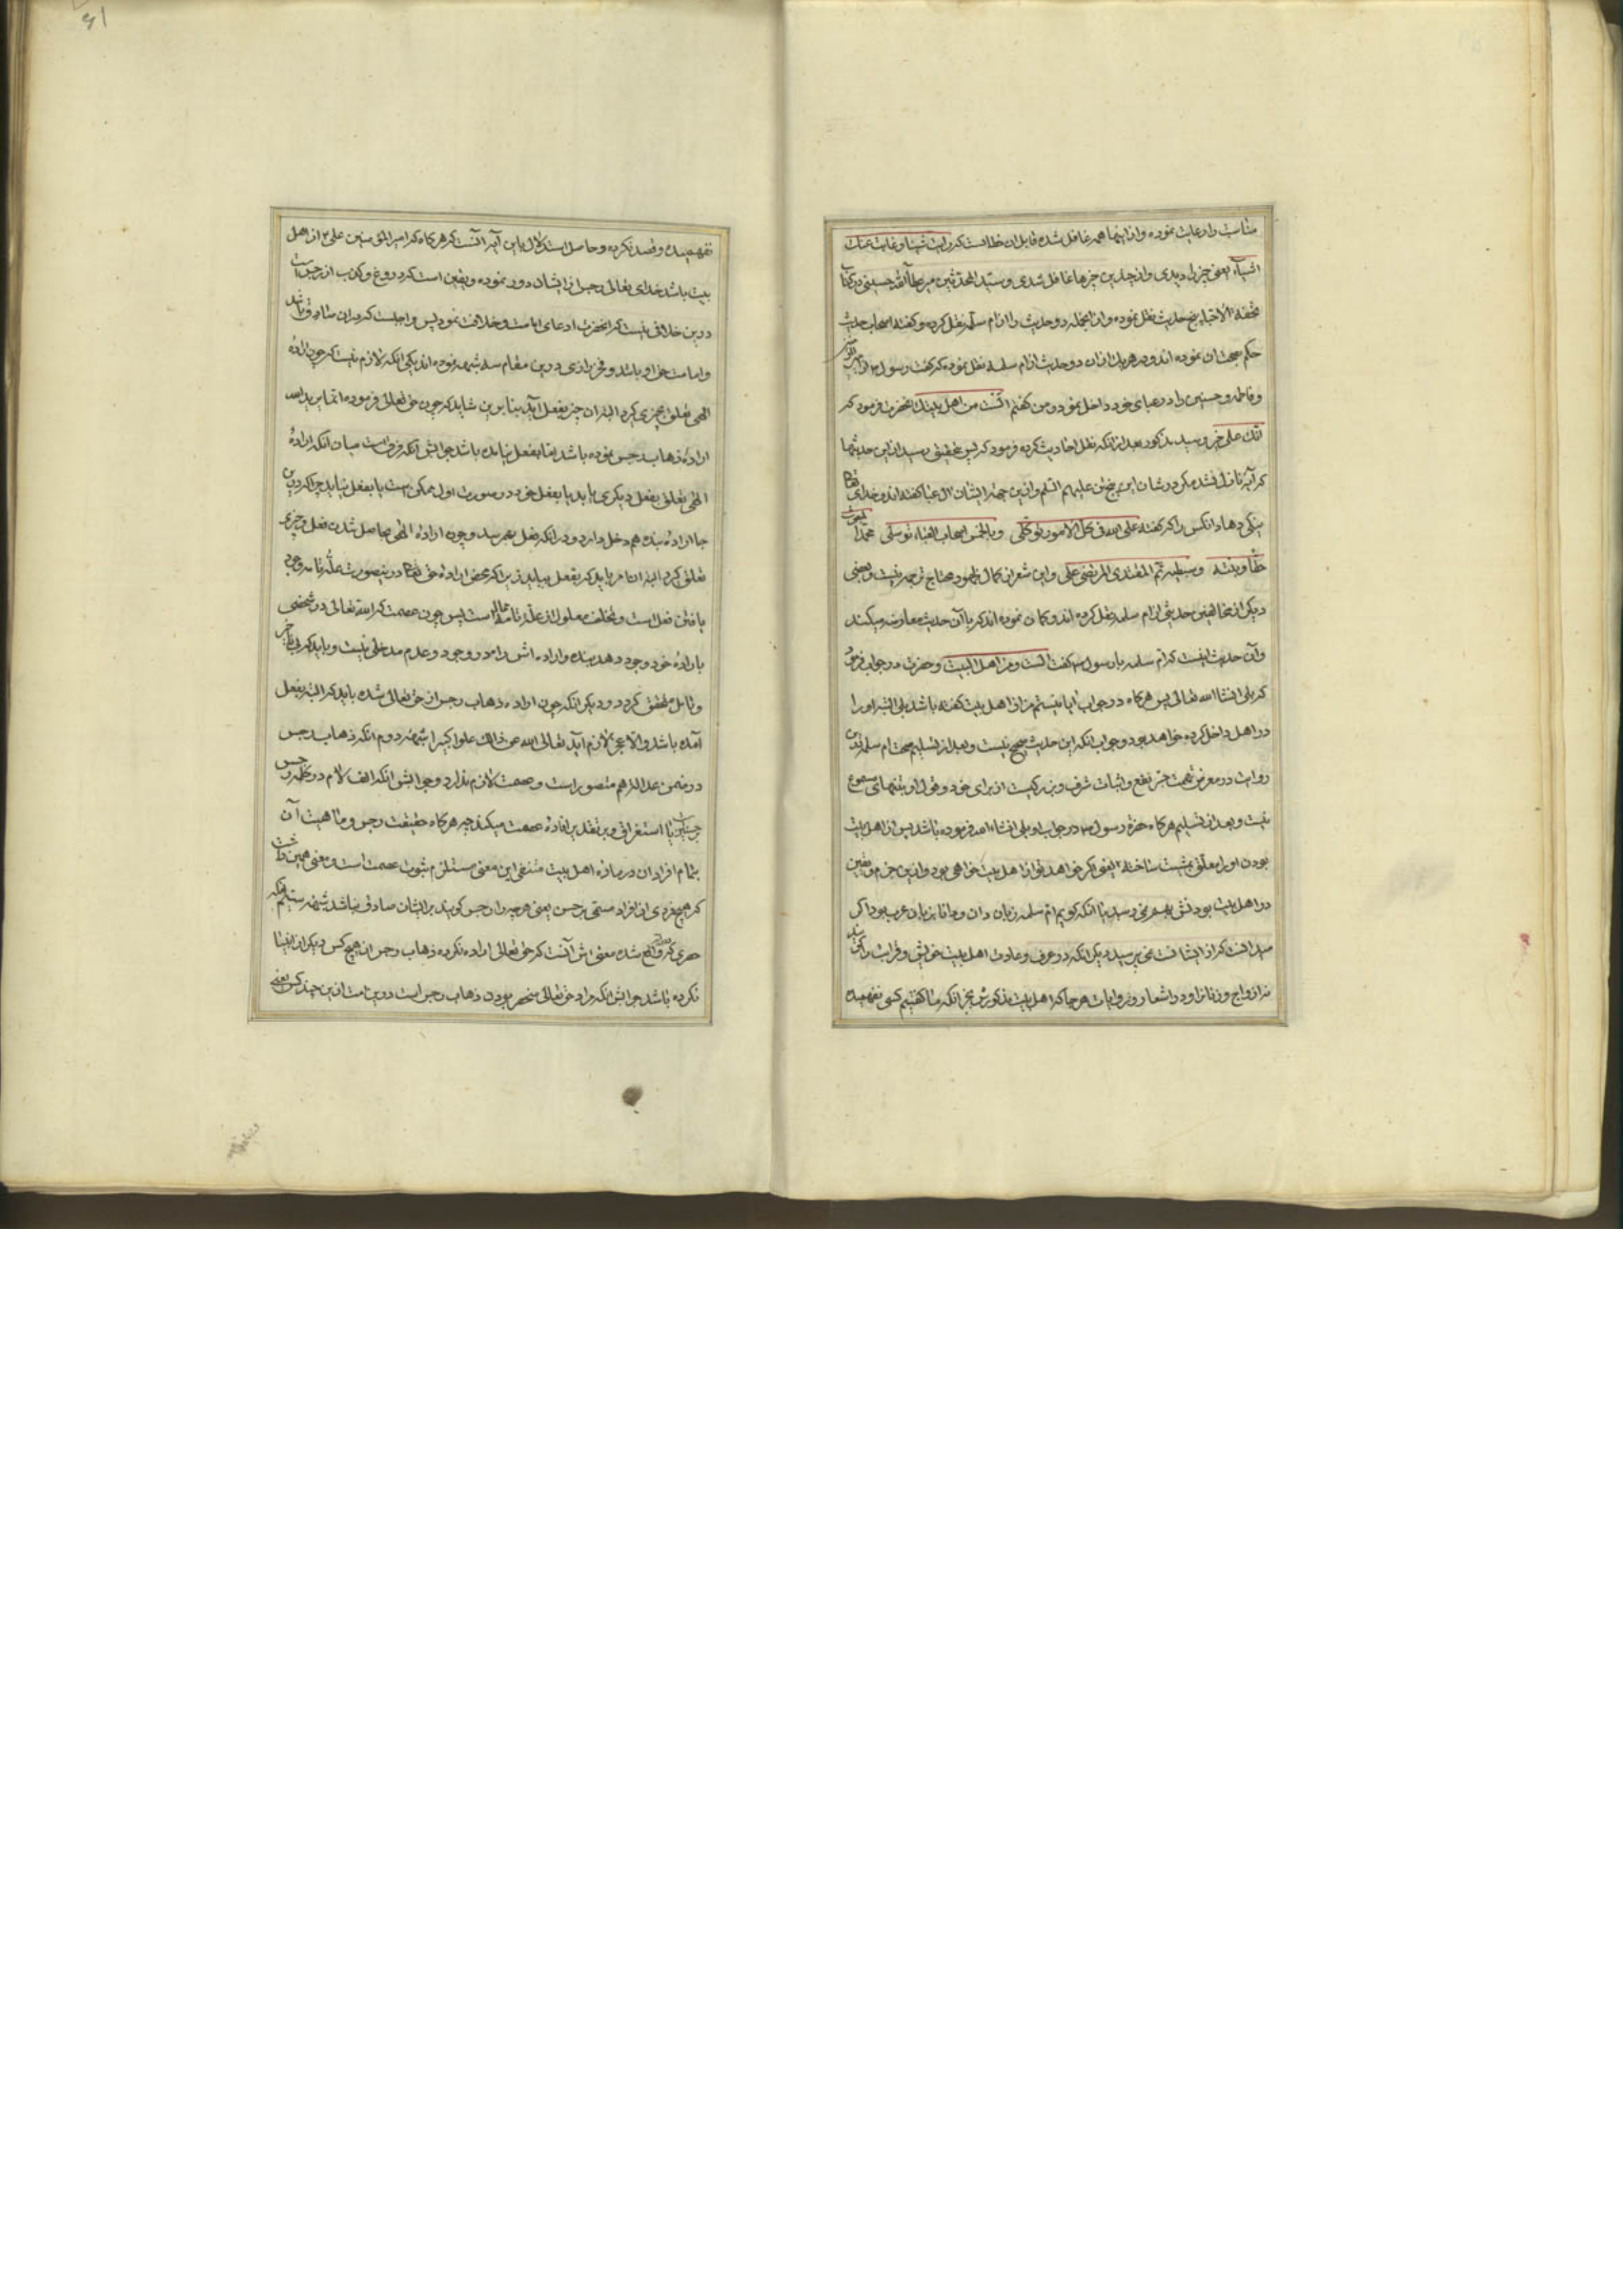 مناسبت را رعایت نموده و از اینها همه غافل شده قابل ان خطابست که رایت شیئا و غابت عنک
اشیآء یعنی چیزی را دیدی و از چندین چیزها غافل شدی و سید المحدثین میر عطآء الله حسینی در کتاب
تحفة الاحباء پنج حدیث نقل نموده و از انجمله دو حدیث را از ام سلمه نقل کرده و گفته اصحاب حدیث
حکم بصحت ان نموده اند و در هر یک از ان دو حدیث از ام سلمه نقل نموده که گفت رسول
و فاطمه و حسنین را در عبای خود داخل نمود و من گفتم الست من اهل بیتک انحضرت فرمود که
انک علی خیر و سید مذکور بعد از انکه نقل احادیث کرده فرمود که پس بتحقیق رسید از این حدیثها
که آیه نازل نشد مگر در شان این پنج تن علیهم السلم و از این جهة ایشان ال عبا گفته اند و خدای تعالی
نیکی دهاد انکس را که گفته علی الله فی کل الامور توکلی و بالخمس اصحاب العباء توسلی محمد المبعوث
حقا و بنته و سبطیه ثم المقتدی المرتضی علی و این شعر از کمال ظهور محتاج ترجمه نیست و بعضی
دیگر از مخالفین حدیثی از ام سلمه نقل کرده اند و گمان نموده اند که با آن حدیث معارضه میکند
وآن حدیث اینست که ام سلمه با رسول گفت الست من اهل البیت و حضرت در جواب فرمود
که بلی انشا الله تعالی پس هرگاه در جواب ایا نیستم من از اهل بیت گفته باشد بلی البته او را
در اهل داخل کرده خواهد بود و جواب انکه این حدیث صحیح نیست و بعد از تسلیم صحت ام سلمه در این
روایت در معرض تهمت جر نفع و اثبات شرف و بزرگیست از برای خود و قول او بتنهائی مسموع
نیست و بعد از تسلیم هرگاه حضرة رسول در جواب او بلی انشاء الله فرموده باشد پس از اهل بیت
بودن او را معلق بمشیت ساخته یعنی اگر خواهد تو از اهل بیت خواهی بود و از این جزم و یقین
در اهل بیت بودنش بهم نمی رسد با انکه گوئیم ام سلمه زبان دان و دانا بزبان عرب بود اگر
میدانست که از ایشانست نمی پرسید دیگر انکه در عرف و عادت اهل بیت خویش و قرابت را گویند
نه ازواج و زنانرا و در اشعار و در روایات هر جا که اهل بیت مذکور شد بجز انکه ما گفتیم کسی نفهمیده
نفهمیده و قصد نکرده و حاصل استدلال باین آیه آنست که هرگاه که امیر المؤمنین علی از اهل
بیت باشد خدای تعالی رجس از ایشان دور نموده و یقین است که دروغ و کذب از رجس است
در این خلافی نیست که انحضرت ادعای امامت و خلافت نمود پس واجبست که در ان صادق باشد
و امامت حق او باشد و فخر رازی در این مقام سه شبهه نموده اند یکی انکه لازم نیست که چون اراده
الهی تعلق بچیزی گیرد البته ان چیز بفعل آید بنا بر این شاید که چون حق تعالی فرموده انما یرید الله
اراده ذهاب رجس نموده باشد اما بفعل نیامده باشد جوابش آنکه فرق است میان انکه اراده
الهی تعلق بفعل دیگری یابد یا بفعل خود در صورت اول ممکن است یا بفعل نیاید چرا که در این
جا اراده بنده هم دخل دارد در انکه فعل بعمل رسد و چون اراده الهی بحاصل شدن فعل و چیزی
تعلق گیرد البته ان امر باید که بفعل بیاید زیرا که محض اراده حق تعالی درینصورت علة تامه وجود
یافتن فعل است و تخلف معلول از علة تامه محال است پس چون عصمت که الله تعالی در شخصی
باراده خود وجود دهد بنده و اراده اش را در وجود و عدم مدخلی نیست و باید که بی تاخیر
و تامل متحقق گردد و دیگر انکه چون اراده ذهاب رجس از حق تعالی شده باید که البته بفعل
آمده باشد و الا عجز لازم آید تعالی الله عن ذالک علوا کبیرا شبهه دوم انکه ذهاب رجس
در ضمن عدالة هم متصور است و عصمت لازم ندارد و جوابش انکه الف لام در کلمه رجس
جنس است یا استغراق و بر هر تقدیر افادۀ عصمت میکند چه هرگاه حقیقت رجس و ماهیت آن
بتمام افراد ان در ماده اهل بیت منتفی این معنی مستلزم ثبوت عصمت است و معنی همین
که هیچ فردی از افراد مسمی برجس یعنی هر چه را رجس گویند بر ایشان صادق نباشد شبهه سیم انکه
حصری که واقع شده معنی اش آنست که حق تعالی اراده نکرده ذهاب رجس از هیچ کس دیگر از اینها
نکرده باشد جوابش انکه مراد حق تعالی منحصر بودن ذهاب رجس است در این امت از این چند کس یعنی